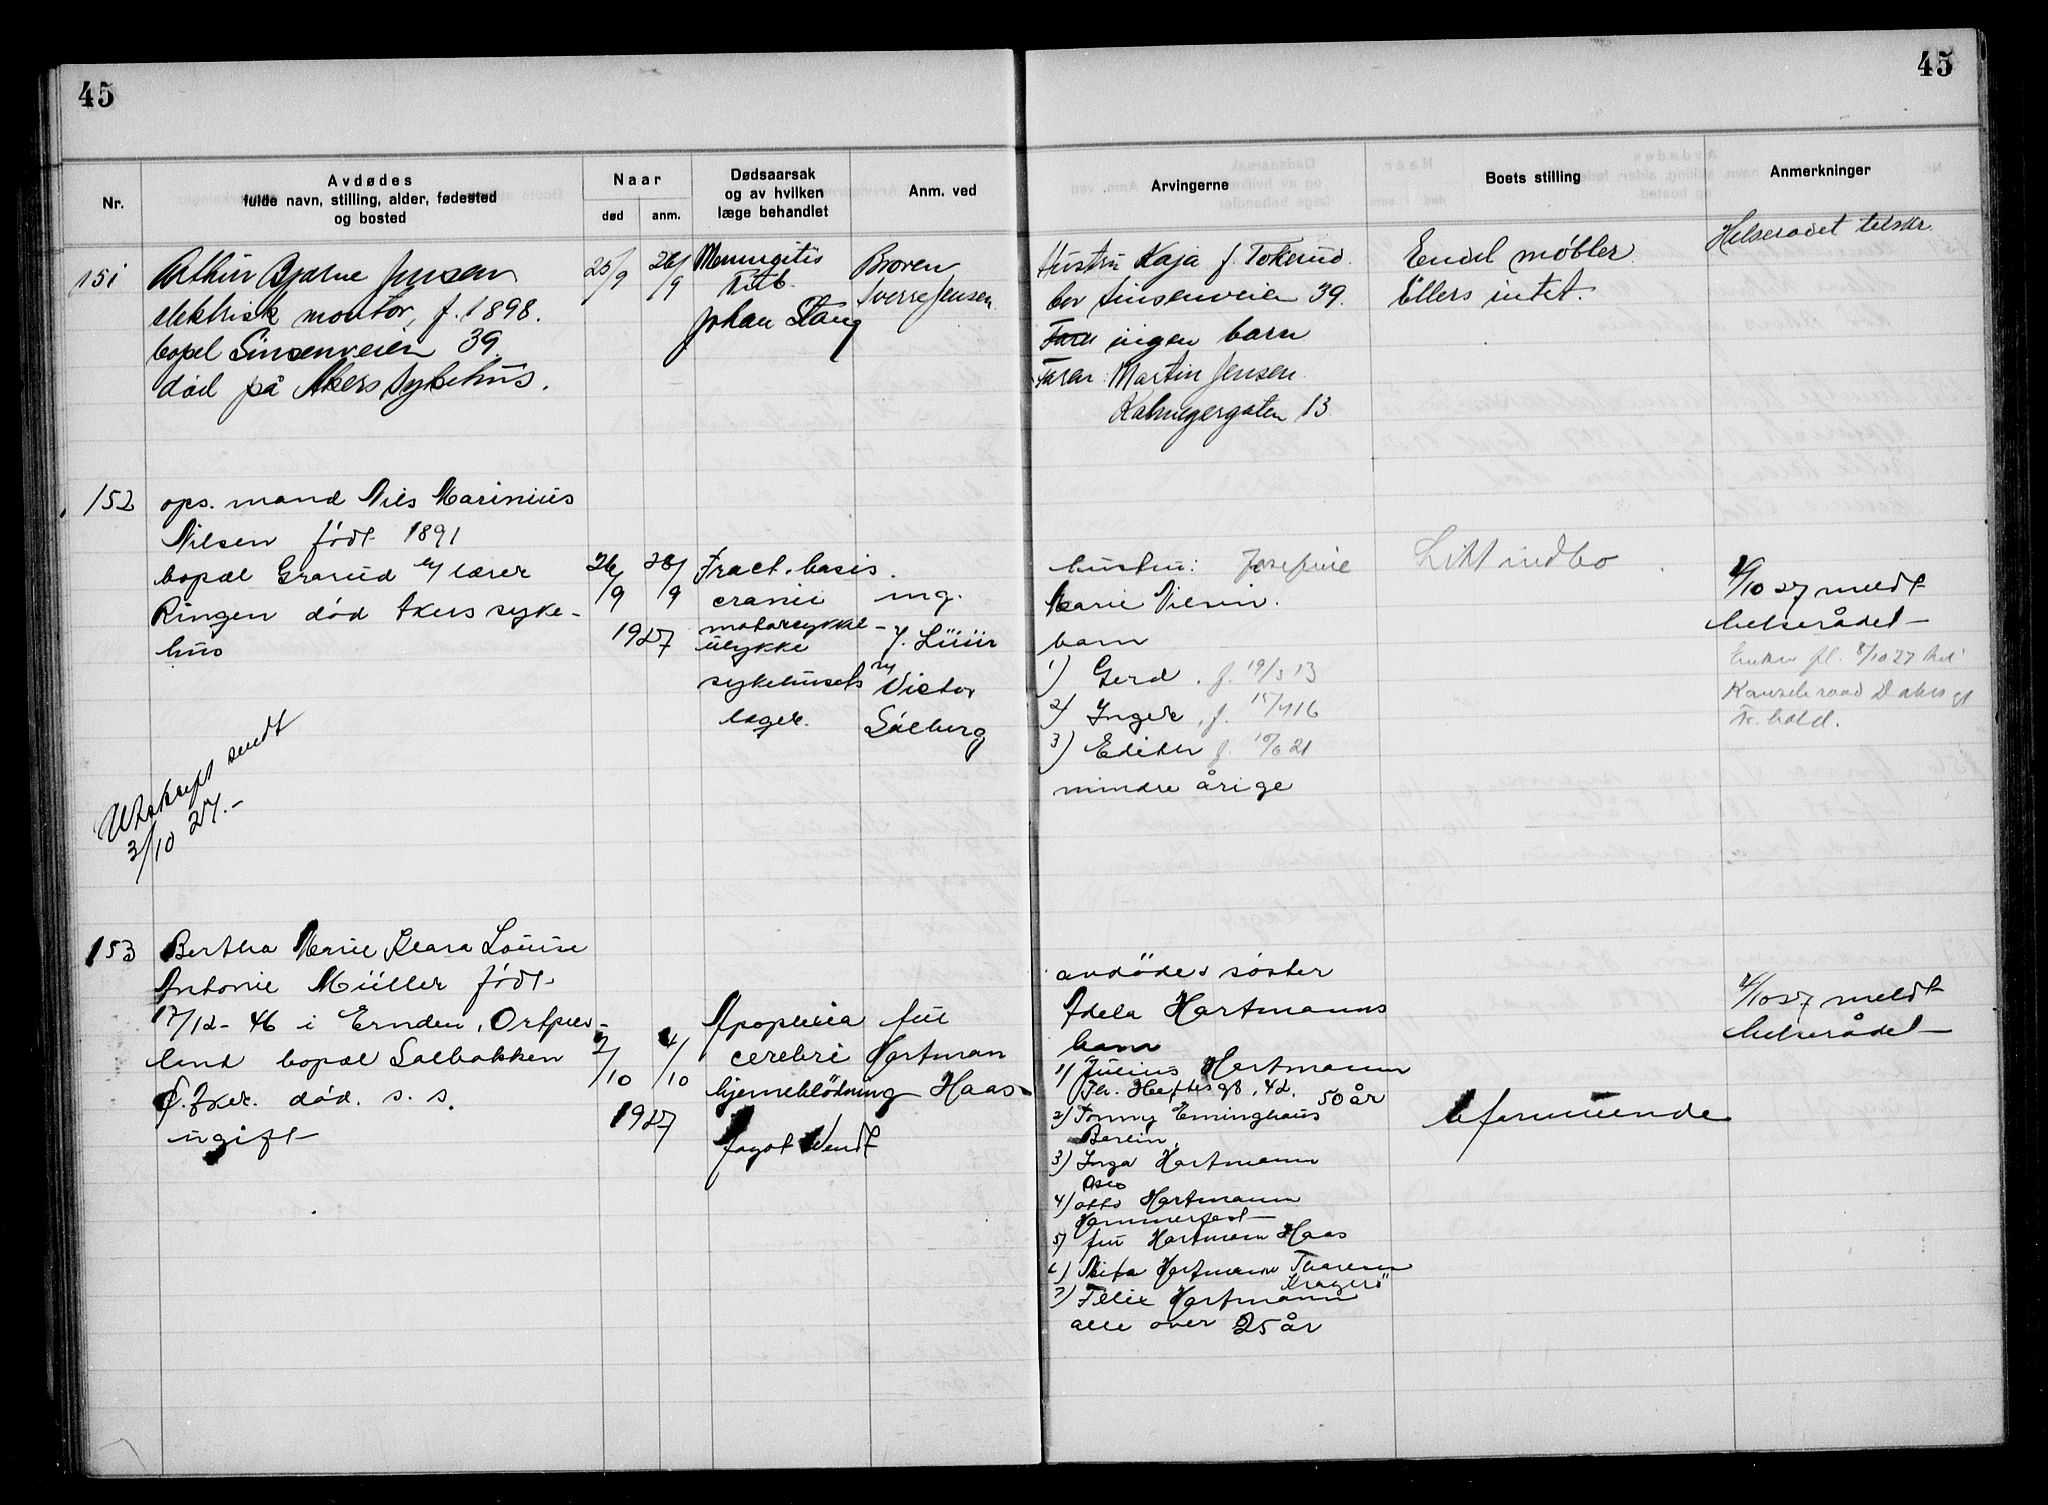 45
45
Nr.
Avdødes
fulde navn, stilling, alder, fødested
og bosted
Naar
død
anm.
Dødsaarsak
og av hvilken
læge behandlet
Anm. ved
Arvingerne
Boets stilling
Anmerkninger
151
Arthur Bjarne Jensen
elektrisk montør, f. 1898.
bopel Sinsenveien 39.
død på Akers sykehus.
25/9
26/9
Meningitis
Tub.
Johan Stang
Broren
Sverre Jensen
Hustru Kaja f. Tokerud
bor Sinsenveien 39.
ingen barn
Faren: Martin Jensen
13
Endel møbler
Ellers intet.
Helserådet
152
ops. mand Nils Marinius
Nilsen født 1891
bopæl Grorud v/ lærer
Ringen død Akers syke-
hus
26/9
28/9
1927
Fract. basis
cranii
motorcykkel-
ulykke
sykehusets
læger.
ing.
v/
Victor
Solberg
hustru: Josefine
Marie Nilsen.
barn
1) Gerd, f. 19/3 13
2) Inger, f.
3) Edith f. 21
mindre årige
Litt indbo
1/10 27 meldt
helserådet
8/10 27
Utskrift sendt
3/10 27.-
153
Bertha Marie Klara Louise
Antonie Müller født
17/12- 46 i Emden, Ostfries-
land bopæl Solbakken
Ø. Aker. død. s. s.
ugift
2/10
4/10
1927
Apoplexia
cerebri
hjerneblödning
Wendt
fru
Hartman
Haas
avdödes søster
Adela Hartmanns
barn
1) Julius Hartmann
Th. Heftes gt. 42. 50 år
2) Tonny Eminghaus
Berlin.
3) Inga Hartmann
Oslo
4) Otto Hartmann
Hammerfest
5) fru Hartmann Haas
6) Hartmann
Kragerö
7) Felix Hartmann
alle over 25 år
Uformuende
4/10 27 meldt
helserådet